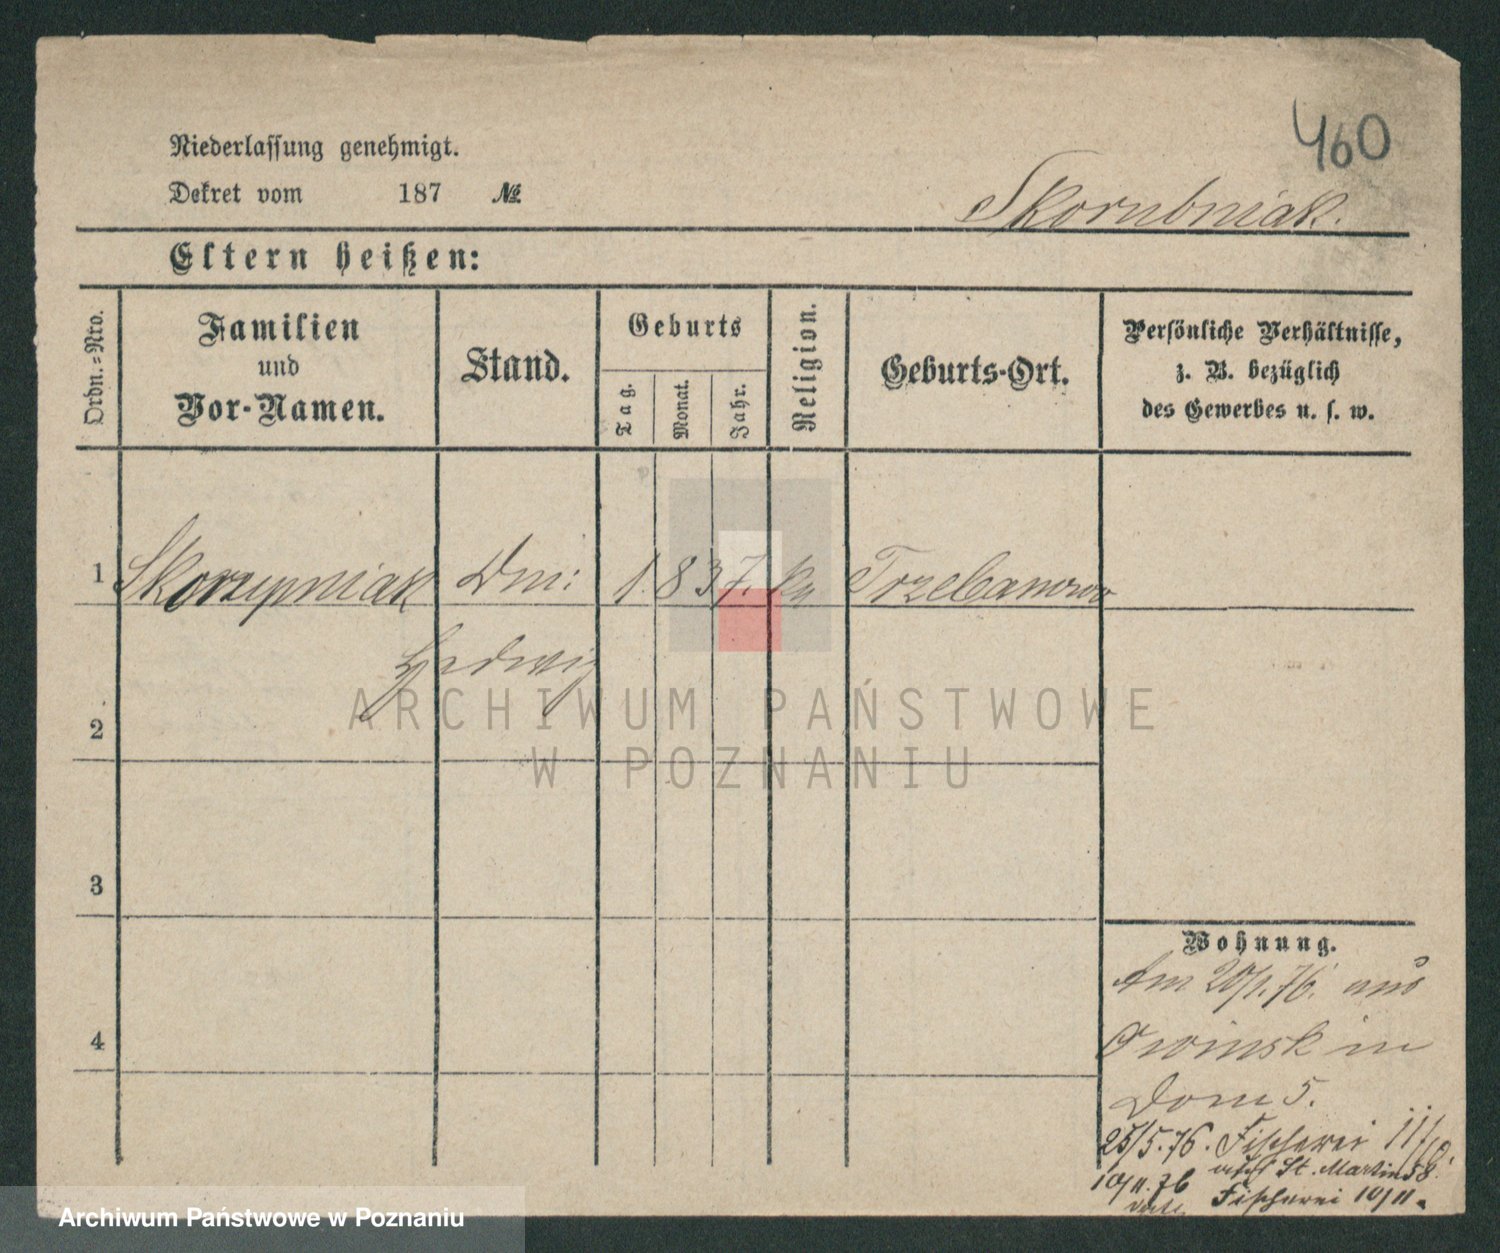 460
Niederlassung genehmigt.
Dekret vom 187 №
Skorubniak.
Eltern heißen:
Ordn.-Nro.
Familien
und
Vor-Namen.
Stand.
Geburts
Tag.
Monat.
Jahr.
Religion.
Geburts-Ort.
Persönliche Verhältnisse,
z. B. bezüglich
des Gewerbes u. s. w.
1 Skorzypniak Dm: 1837. Trzebanowo
Hedwig
2
3
4
Wohnung.
Am 20/1.76. aus
Owinsk in
Dom 5.
25/5.76. Fischerei
St. Martin 58
10/11.76 Fischerei 10/11.
ARCHIWUM PAŃSTWOWE
W POZNANIU
Archiwum Państwowe w Poznaniu